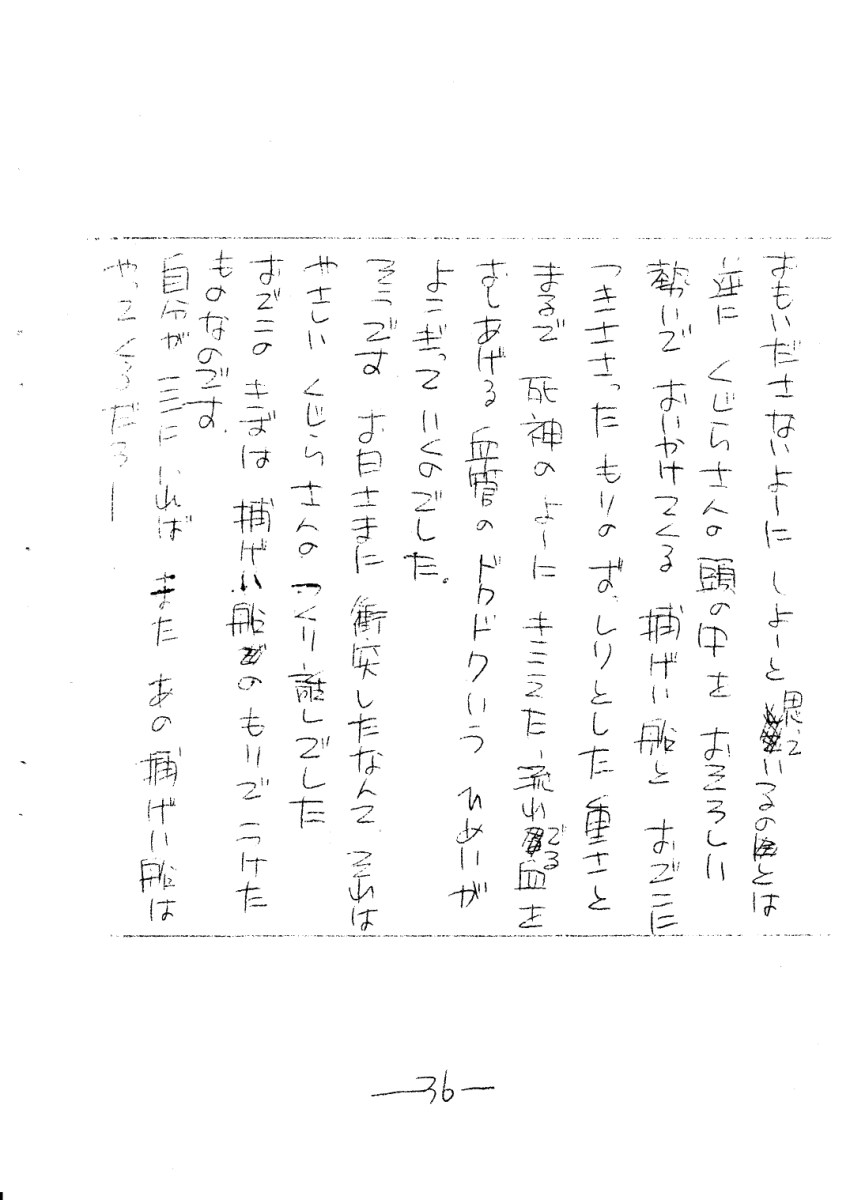 おもいださないよーにしよーと思っているのとは
逆に くじらさんの頭の中を おそろしい
勢いで おいかけてくる 捕げい船と おでこに
つきささった もりの ずっしりとした 重さと
まるで 死神の よーに きこえた、流れでる血を
おしあげる 血管の ドクドクいう ひめいが
よこぎって いくのでした。
そうです お日さまに 衝突したなんて それは
やさしい くじらさんの つくり話しでした
おでこの きずは 捕げい船のもりで うけた
ものなのです。
自分が ここに いれば また あの 捕げい船は
やってくるだろー
—36—